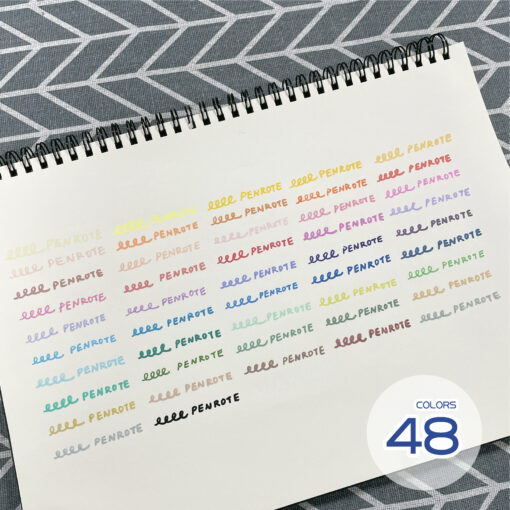 PENROTE PENROTE PENROTE PENROTE PENROTE
PENROTE PENROTE PENROTE PENROTE PENROTE
PENROTE PENROTE PENROTE PENROTE PENROTE
PENROTE PENROTE PENROTE PENROTE PENROTE
PENROTE PENROTE PENROTE PENROTE PENROTE
PENROTE PENROTE PENROTE PENROTE PENROTE
PENROTE PENROTE PENROTE PENROTE PENROTE
PENROTE PENROTE PENROTE PENROTE PENROTE
PENROTE PENROTE PENROTE PENROTE PENROTE
PENROTE PENROTE
COLORS
48